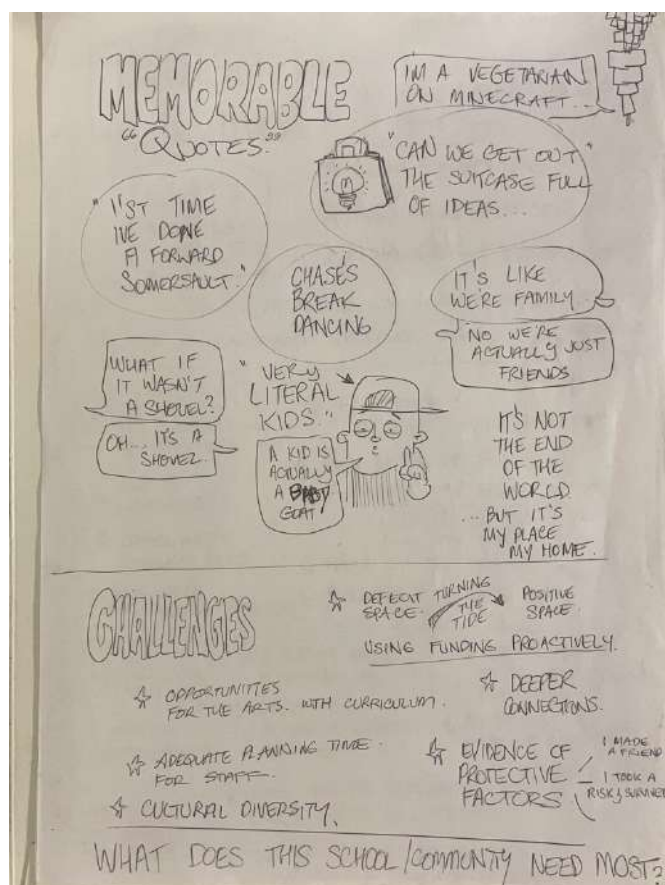 MEMORABLE
"QUOTES."
I'M A VEGETARIAN
ON MINECRAFT...
"CAN WE GET OUT"
THE SUITCASE FULL
OF IDEAS...
"1'ST TIME
IVE DONE
A FORWARD
SOMERSAULT."
CHASE'S
BREAK
DANCING
IT'S LIKE
WE'RE FAMILY
NO WE'RE
ACTUALLY JUST
FRIENDS
WHAT IF
IT WASN'T
A SHOVEL?
OH... IT'S A
SHOVEL.
"VERY
LITERAL
KIDS."
A KID IS
ACTUALLY
A BABY
GOAT
IT'S NOT
THE END
OF THE
WORLD
...BUT IT'S
MY PLACE
MY HOME.
CHALLENGES
☆ DEFECIT
SPACE.
TURNING
THE
TIDE
POSITIVE
SPACE.
USING FUNDING PROACTIVELY.
☆ OPPORTUNITIES
FOR THE ARTS. WITH CURRICULUM.
☆ DEEPER
CONNECTIONS.
☆ ADEQUATE PLANNING TIME.
FOR STAFF.
☆ EVIDENCE OF
PROTECTIVE
FACTORS
I MADE
A FRIEND
I TOOK A
RISK &
☆ CULTURAL DIVERSITY.
WHAT DOES THIS SCHOOL/COMMUNITY NEED MOST?